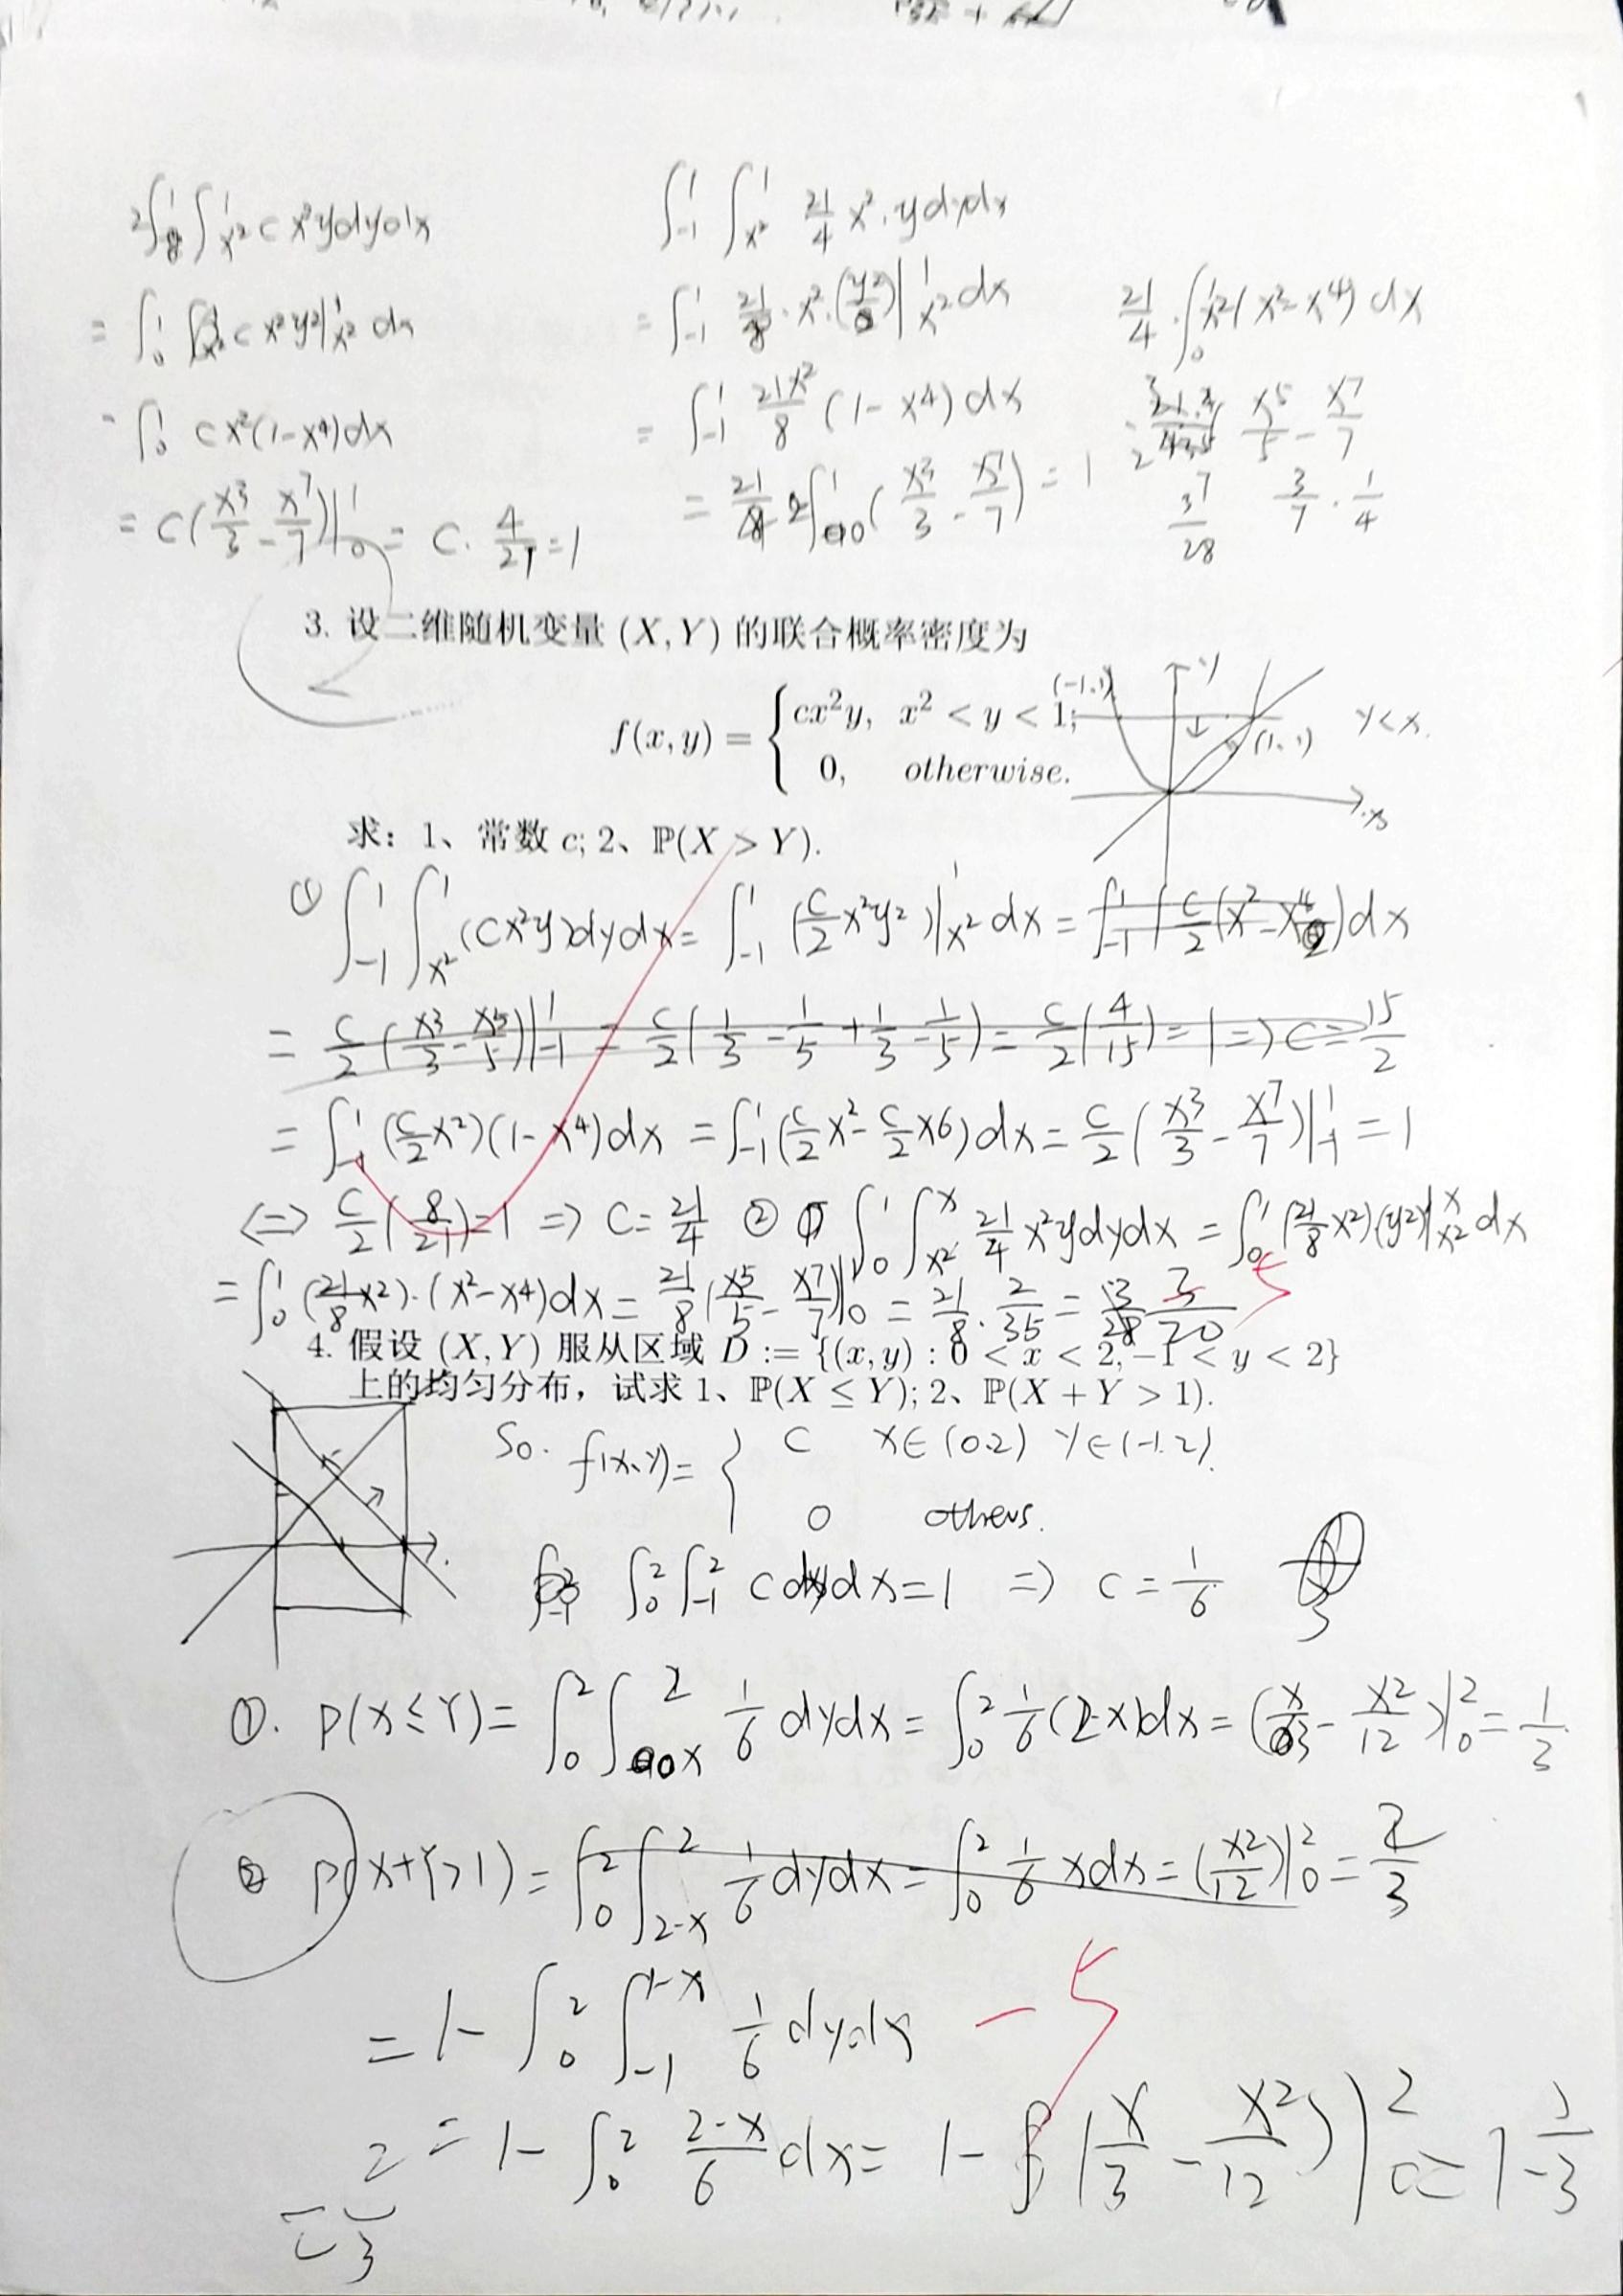 2∫₀¹∫_{x²}¹ c x²y dy dx
= ∫₀¹ c x²y²|_{x²}¹ dx
= ∫₀¹ cx²(1-x⁴)dx
= c(x³/3 - x⁷/7)|₀¹ = c · 4/21 = 1
∫₋₁¹ ∫_{x²}¹ 21/4 x²·y dy dx
= ∫₋₁¹ 21/8 · x² · (y²)|_{x²}¹ dx
= ∫₋₁¹ 21x²/8 (1-x⁴) dx
= 21/8 2∫₀¹ (x³/3 - x⁷/7) = 1
21/4 · ∫₀¹ x²(x²-x⁴) dx
x⁵/5 - x⁷/7
3/28 3/7 · 1/4
3. 设二维随机变量 (X,Y) 的联合概率密度为
f(x,y) = { cx²y, x² < y < 1;
0, otherwise.
(-1,1) y
(1,1) y<x.
x
求：1、常数 c; 2、ℙ(X > Y).
① ∫₋₁¹ ∫_{x²}¹ (cx²y)dydx = ∫₋₁¹ (c/2 x²y²)|_{x²}¹ dx = ∫₋₁¹ c/2(x²-x⁴)dx
= c/2 (x³/3 - x⁵/5)|₋₁¹ = c/2(1/3 - 1/5 + 1/3 - 1/5) = c/2(4/15) = 1 => c = 15/2
= ∫₋₁¹ (c/2 x²)(1-x⁴)dx = ∫₋₁¹ (c/2 x² - c/2 x6)dx = c/2 (x³/3 - x⁷/7)|₋₁¹ = 1
<=> c/2 (8/21) = 1 => c = 21/4 ② ∫₀¹ ∫_{x²}^x 21/4 x²y dy dx = ∫₀¹ (21/8 x²)(y²)|_{x²}^x dx
= ∫₀¹ (21/8 x²)·(x²-x⁴)dx = 21/8 (x⁵/5 - x⁷/7)|₀¹ = 21/8 · 2/35 = 3/20
4. 假设 (X,Y) 服从区域 D := {(x,y) : 0 < x < 2, -1 < y < 2}
上的均匀分布，试求 1、ℙ(X ≤ Y); 2、ℙ(X + Y > 1).
So. f(x,y) = { c x∈(0.2) y∈(-1.2).
0 others.
∫₀² ∫₋₁² c dydx = 1 => c = 1/6
①. P(X≤Y) = ∫₀² ∫ₓ² 1/6 dydx = ∫₀² 1/6 (2-x)dx = (x/3 - x²/12)|₀² = 1/3
② P(X+Y>1) = ∫₀² ∫_{2-x}² 1/6 dydx = ∫₀² 1/6 x dx = (x²/12)|₀² = 2/3
= 1 - ∫₀² ∫₋₁^{1-x} 1/6 dydx -5
= 1 - ∫₀² (2-x)/6 dx = 1 - (x/3 - x²/12)|₀² = 1 - 1/3
= 2/3